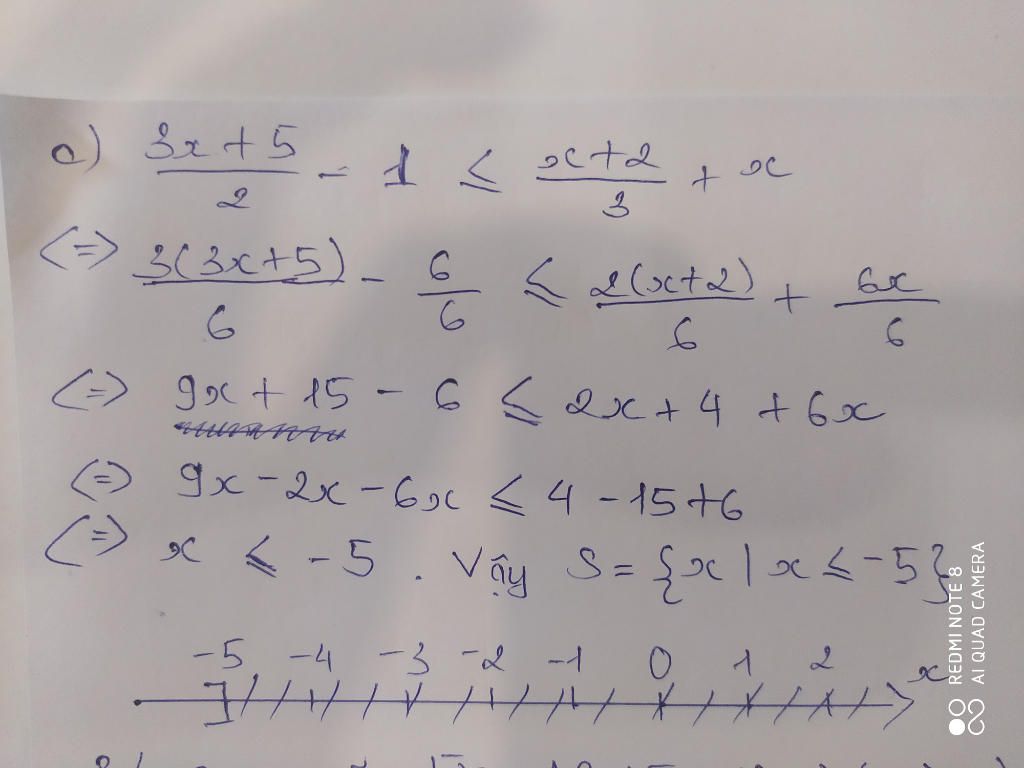 c) (3x + 5)/2 - 1 ≤ (x + 2)/3 + x
<=> 3(3x + 5)/6 - 6/6 ≤ 2(x + 2)/6 + 6x/6
<=> 9x + 15 - 6 ≤ 2x + 4 + 6x
<=> 9x - 2x - 6x ≤ 4 - 15 + 6
<=> x ≤ -5 . Vậy S = {x | x ≤ -5}
-5 -4 -3 -2 -1 0 1 2 x
REDMI NOTE 8
AI QUAD CAMERA